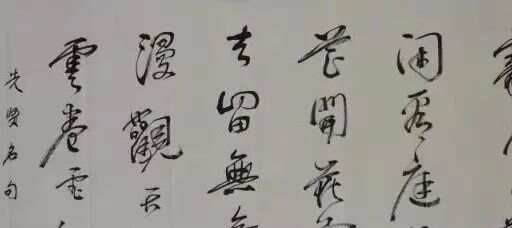 闲看庭
花開花
去留無
漫觀天
雲卷雲
先贤名句